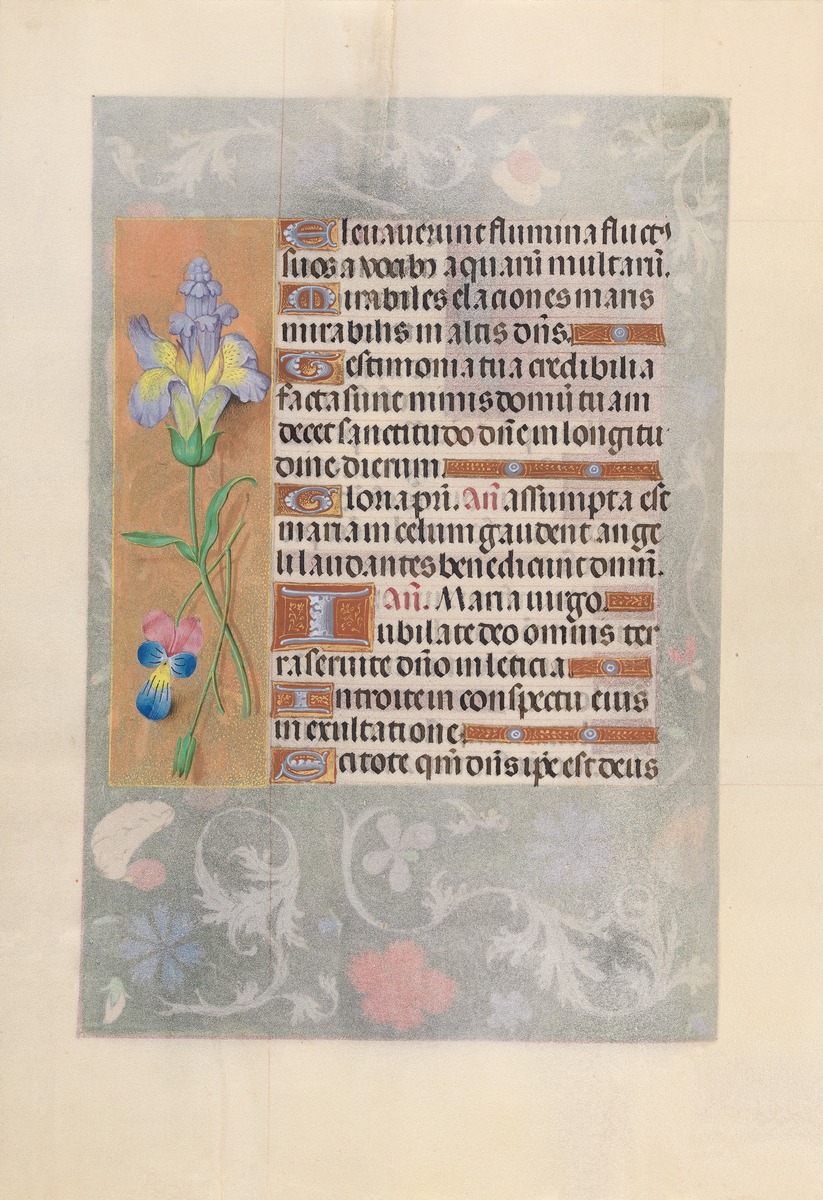 Eleuauerunt flumina fluct9
suos a vocib9 aquarū multarū.
Mirabiles elaciones maris
mirabilis in altis dn̄s.
Testimonia tua credibilia
facta sunt nimis domū tuam
decet sanctitudo dn̄e in longitu
dine dierum.
Gloria pr̄i. An̄ assumpta est
maria in celum gaudent ange
li laudantes benedicunt dominū.
An̄. Maria uirgo.
Iubilate deo omnis ter
ra seruite dn̄o in leticia
Introite in conspectu eius
in exultatione.
Scitote qm̄ dn̄s ip̄e est deus